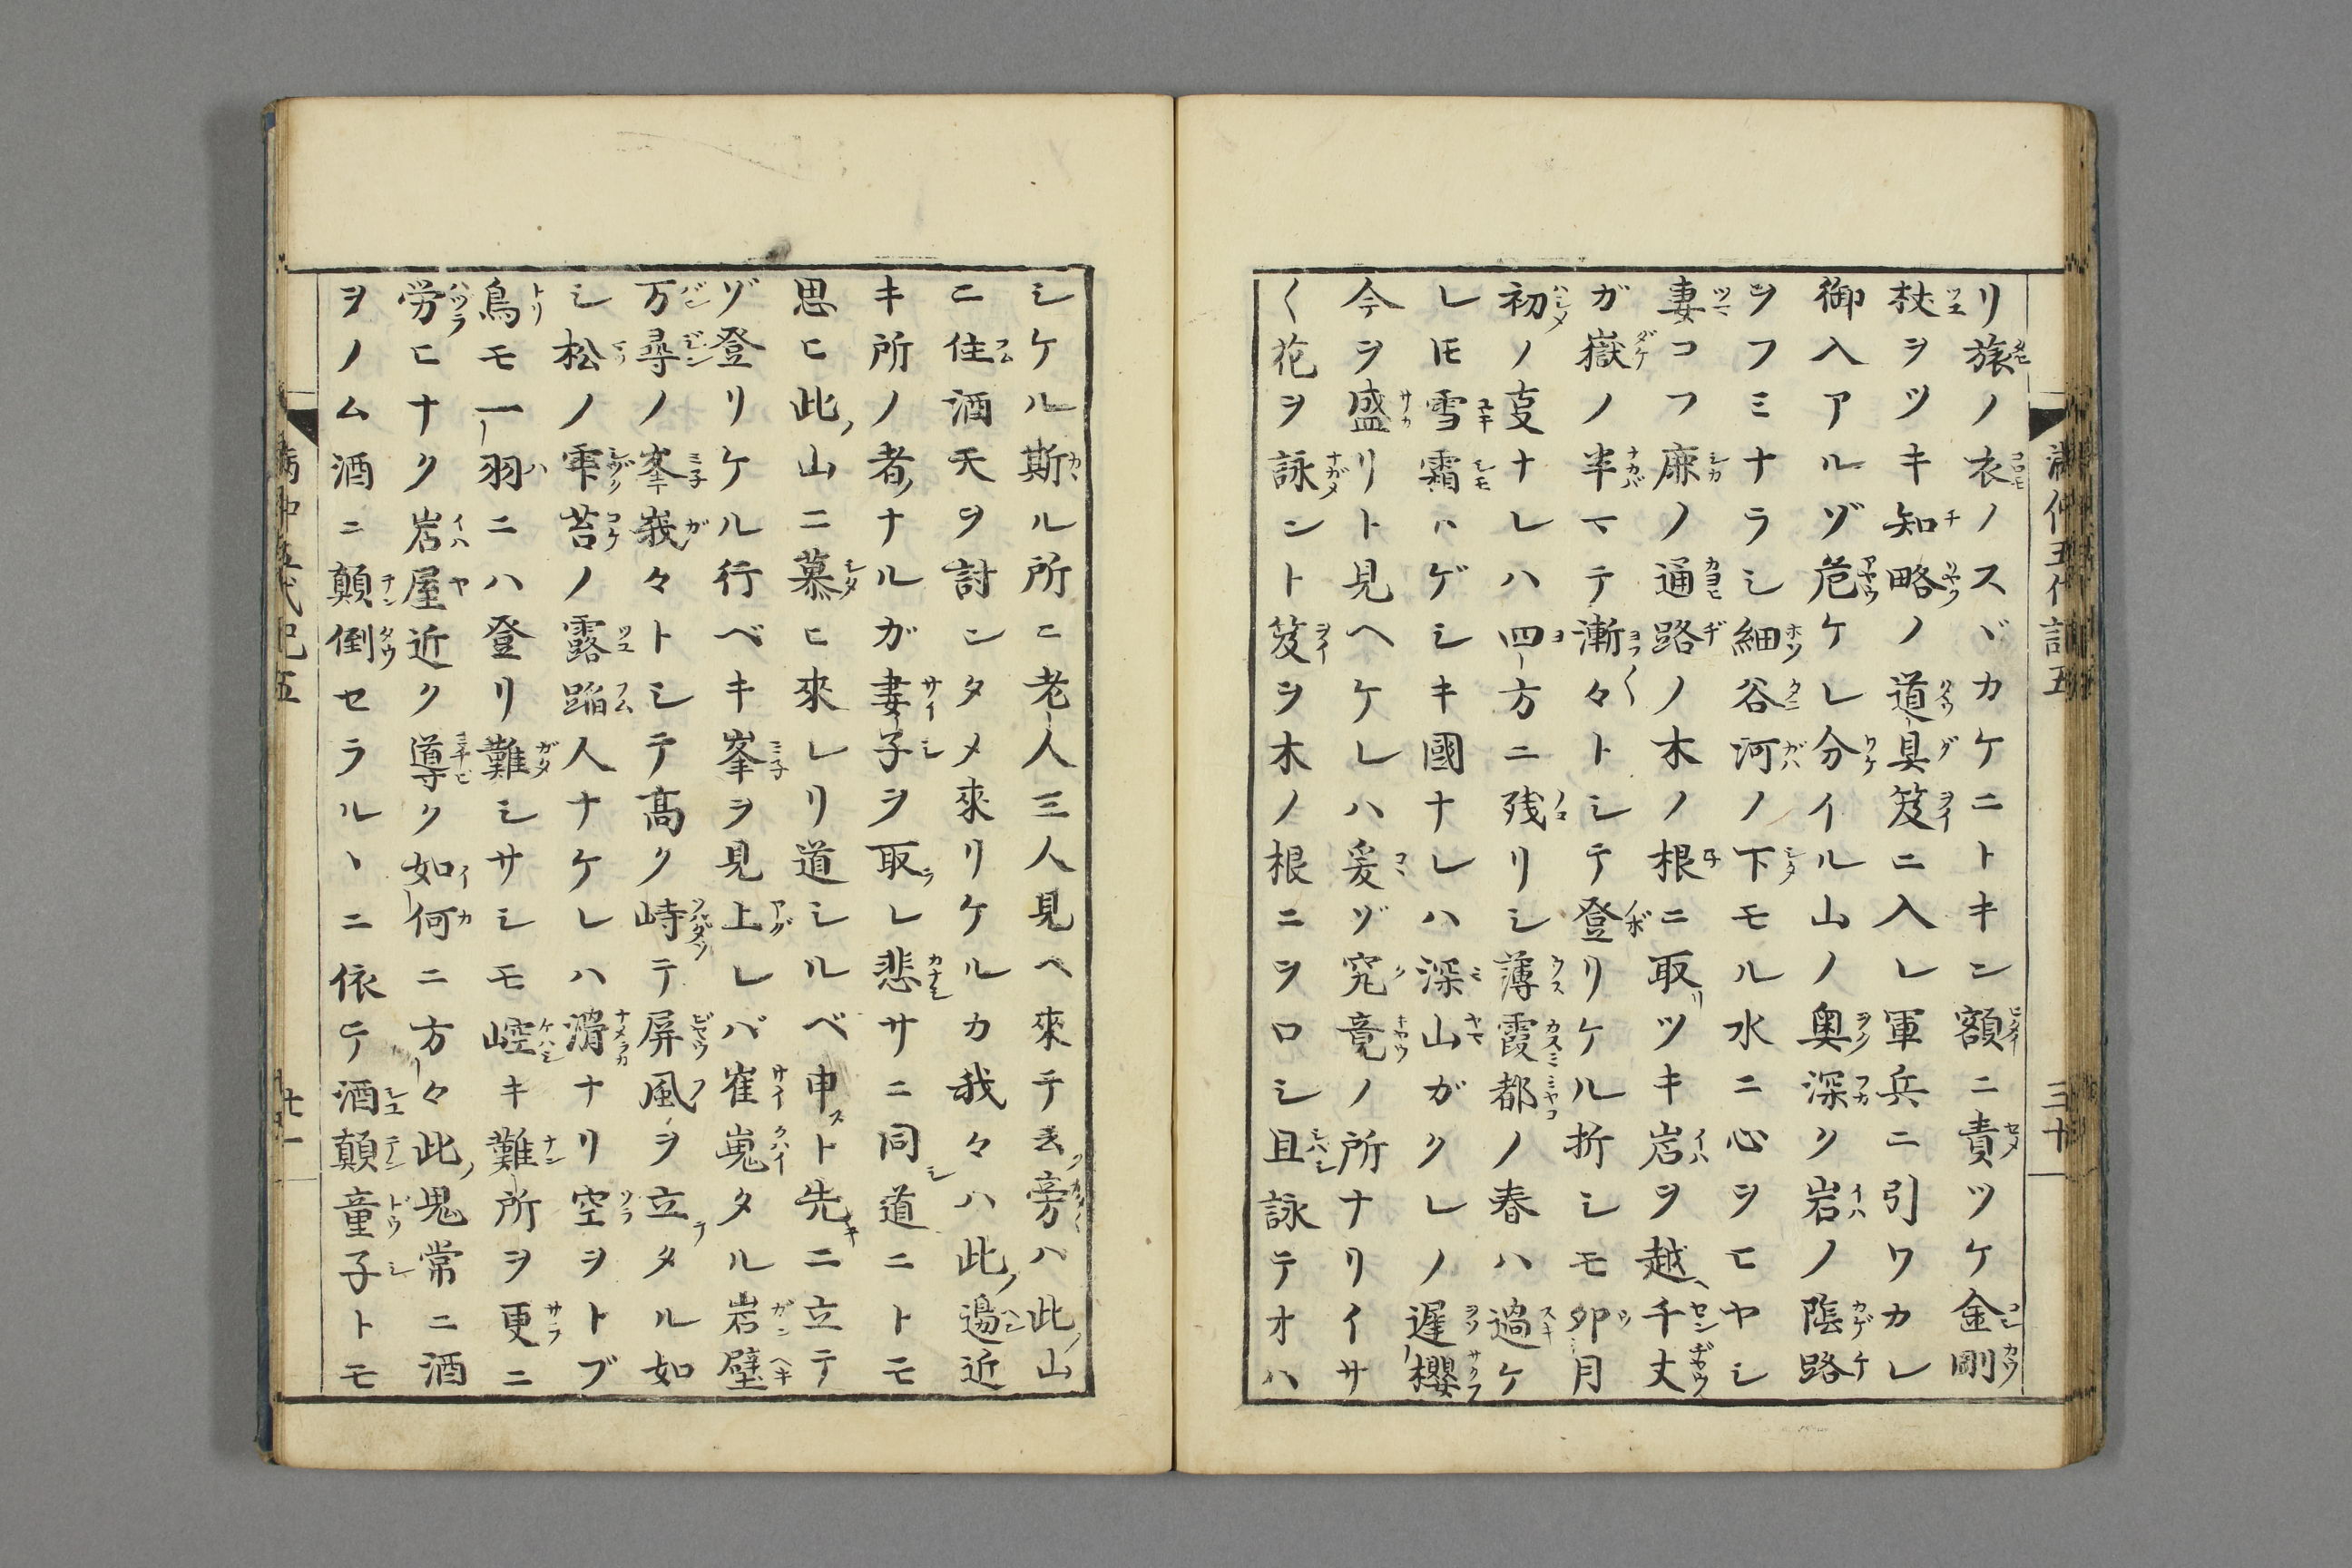 リ旅ノ衣ノスヾカケニトキン額ニ責ツケ金剛
杖ヲツキ知略ノ道具笈ニ入レ軍兵ニ引ワカレ
御入アルゾ危ケレ分イル山ノ奥深ク岩ノ陰路
ヲフミナラシ細谷河ノ下モル水ニ心ヲヒヤシ
妻コフ鹿ノ通路ノ木ノ根ニ取リツキ岩ヲ越ヘ千丈
ガ嶽ノ半マテ漸々トシテ登リケル折シモ卯月
初ノ夏ナレハ四方ニ残リシ薄霞都ノ春ハ過ケ
レ𪜈雪霜ハゲシキ國ナレハ深山ガクレノ遅櫻
今ヲ盛リト見ヘケレハ爰ゾ究竟ノ所ナリイサ
〱花ヲ詠ント笈ヲ木ノ根ニヲロシ且詠テオハ
シケル斯ル所ニ老人三人見ヘ來テ旁ハ此ノ山
ニ住酒天ヲ討ンタメ來リケルカ我々ハ此ノ邊近
キ所ノ者ノナルガ妻子ヲ取レ悲サニ同シ道ニトモ
思ヒ此ノ山ニ慕ヒ來レリ道シルベ申スト先キニ立テ
ゾ登リケル行ベキ峯ヲ見上レバ崔嵬タル岩壁
万尋ノ峯峩々トシテ高ク峙テ屏風ヲ立テタル如
シ松ノ雫苔ノ露蹈人ナケレハ滑ナリ空ヲトブ
鳥モ一羽ニハ登リ難シサシモ崆キ難所ヲ更ニ
労ヒナク岩屋近ク導ク如何ニ方々此ノ鬼常ニ酒
ヲノム酒ニ顛倒セラルヽニ依テ酒顛童子トモ